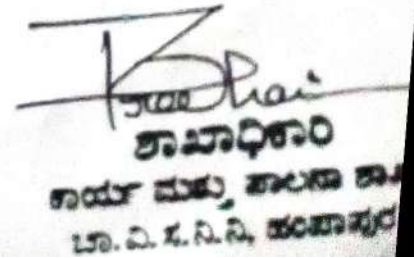 ಶಾಖಾಧಿಕಾರಿ
ಕಾರ್ಯ ಮತ್ತು ಪಾಲನಾ
ಚಾ.ವಿ.ಸ.ನಿ.ನಿ, ಹಂಪಾಪುರ